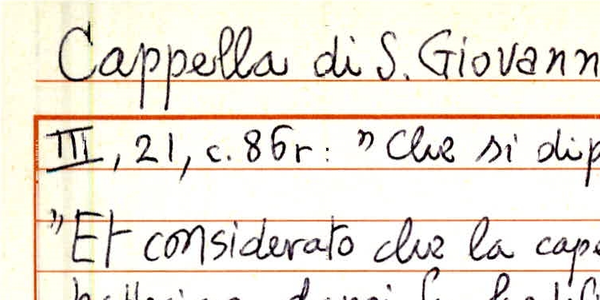 Cappella di S. Giovann
III, 21, c. 86r: "Che si dip
"Et considerato che la cape